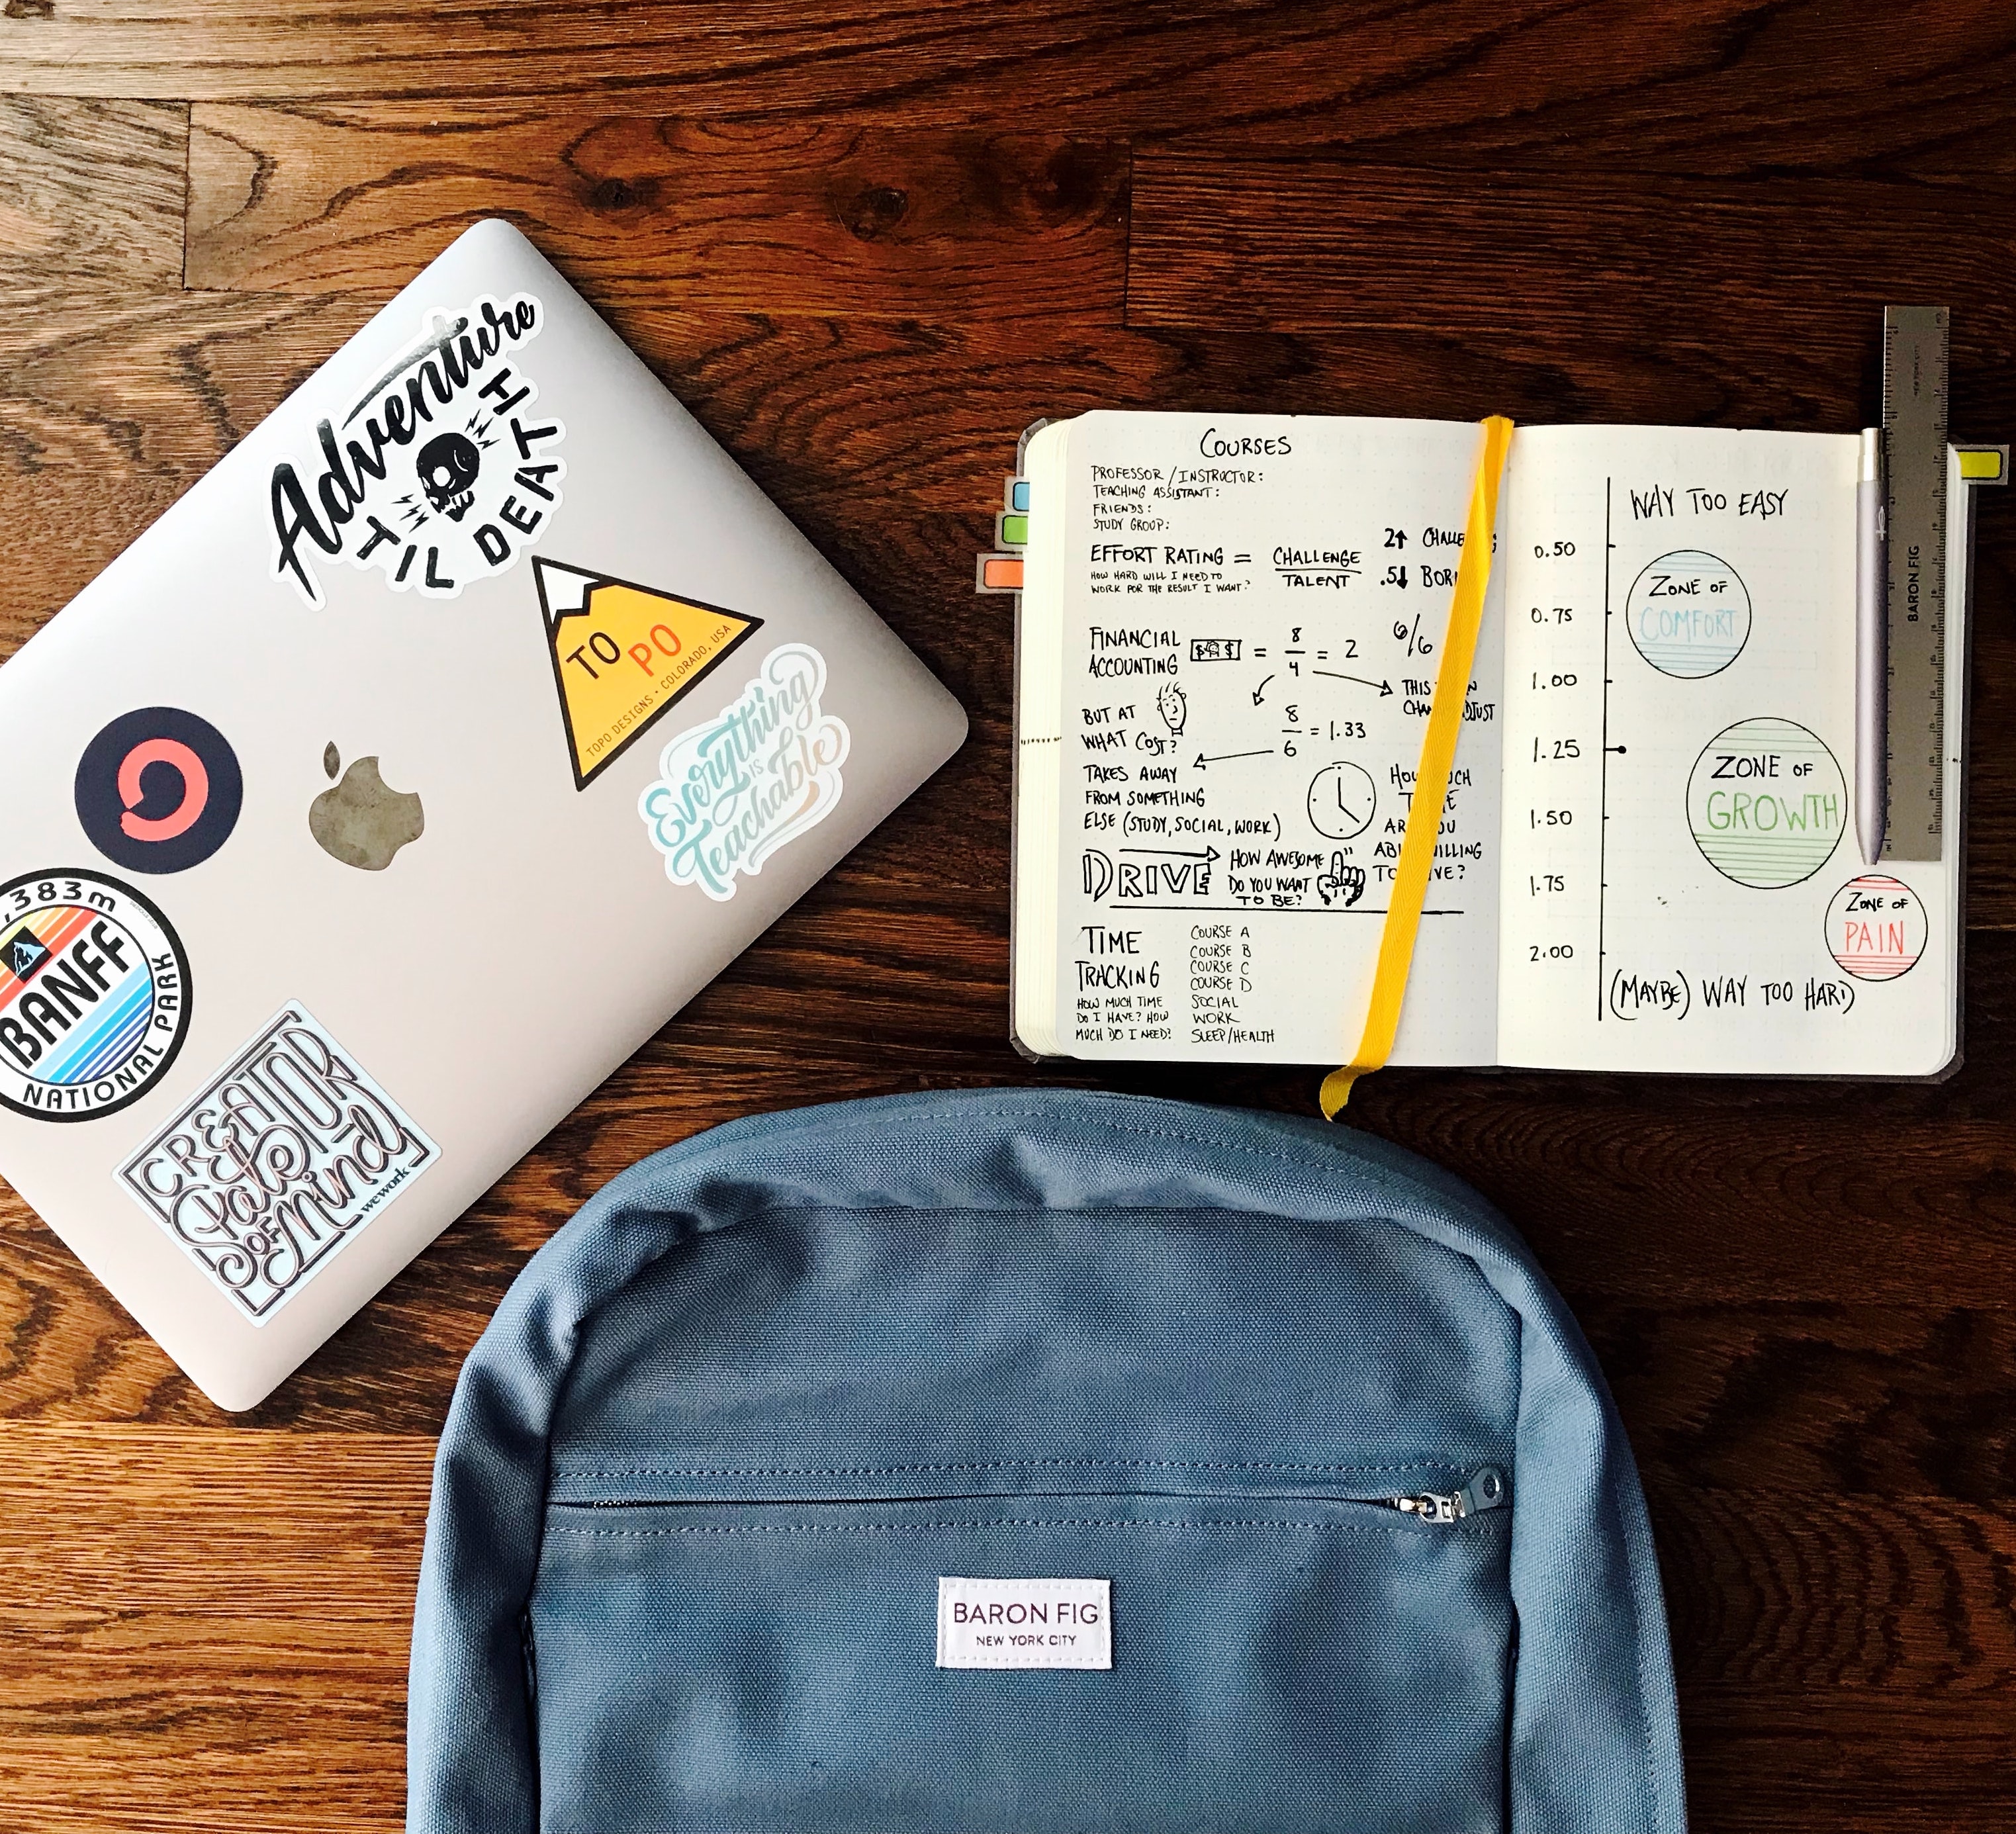 Adventure
'TIL DEATH
TO
PO
TOPO DESIGNS • COLORADO, USA
Everything
IS
Teachable
,383m
BANFF
NATIONAL PARK
CREATOR
State
OF Mind
wework
COURSES
PROFESSOR/INSTRUCTOR:
TEACHING ASSISTANT:
FRIENDS:
STUDY GROUP:
EFFORT RATING = CHALLENGE
TALENT
HOW HARD WILL I NEED TO
WORK FOR THE RESULT I WANT?
2↑
.5↓
FINANCIAL
ACCOUNTING
$ $ = 8/4 = 2
6/6
THIS
BUT AT
WHAT COST?
8/6 = 1.33
TAKES AWAY
FROM SOMETHING
ELSE (STUDY, SOCIAL, WORK)
DRIVE
HOW AWESOME
DO YOU WANT
TO BE?
TIME
TRACKING
HOW MUCH TIME
DO I HAVE? HOW
MUCH DO I NEED?
COURSE A
COURSE B
COURSE C
COURSE D
SOCIAL
WORK
SLEEP/HEALTH
WAY TOO EASY
0.50
0.75
1.00
1.25
1.50
1.75
2.00
ZONE OF
COMFORT
ZONE OF
GROWTH
ZONE OF
PAIN
(MAYBE) WAY TOO HARD
BARON FIG
BARON FIG
NEW YORK CITY